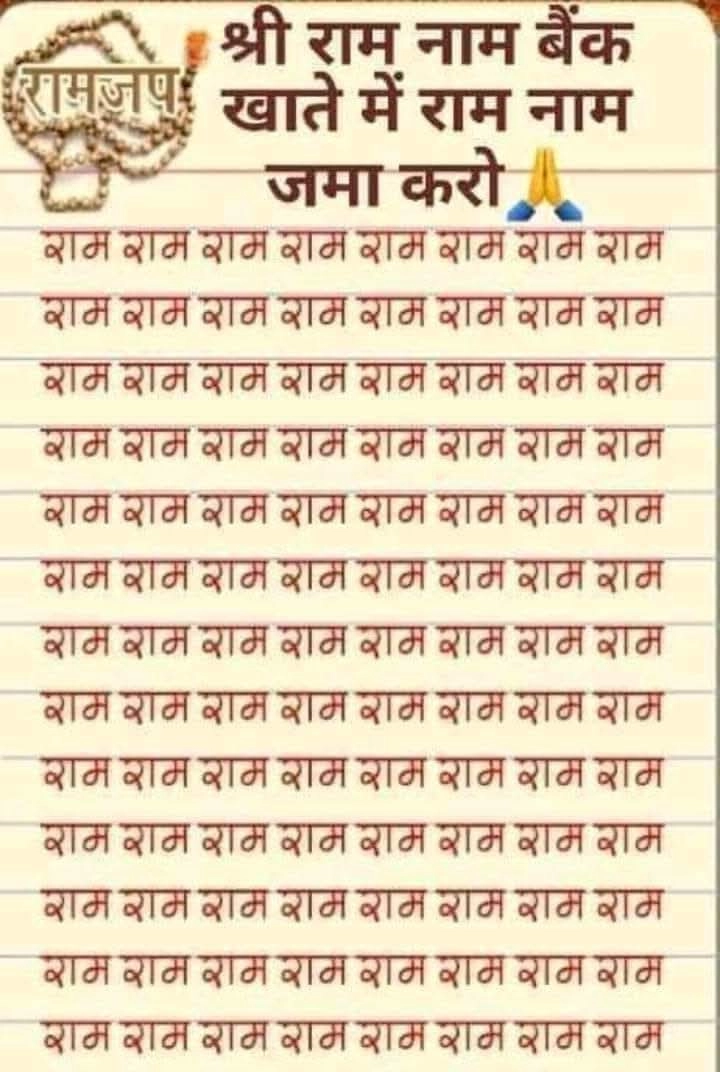 रामजप
श्री राम नाम बैंक
खाते में राम नाम
जमा करो🙏
राम राम राम राम राम राम राम राम
राम राम राम राम राम राम राम राम
राम राम राम राम राम राम राम राम
राम राम राम राम राम राम राम राम
राम राम राम राम राम राम राम राम
राम राम राम राम राम राम राम राम
राम राम राम राम राम राम राम राम
राम राम राम राम राम राम राम राम
राम राम राम राम राम राम राम राम
राम राम राम राम राम राम राम राम
राम राम राम राम राम राम राम राम
राम राम राम राम राम राम राम राम
राम राम राम राम राम राम राम राम